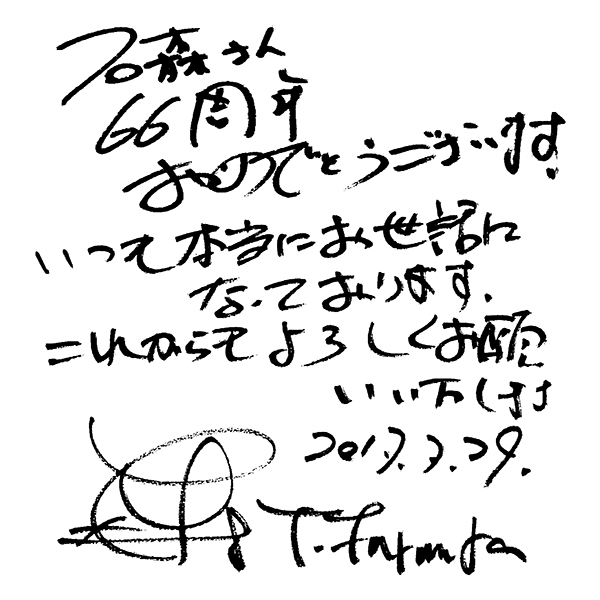 石森さん
66周年
おめでとうございます!
いつも本当にお世話に
なっております.
これからもよろしくお願
いいたします
2017.3.29.
T. Furumura